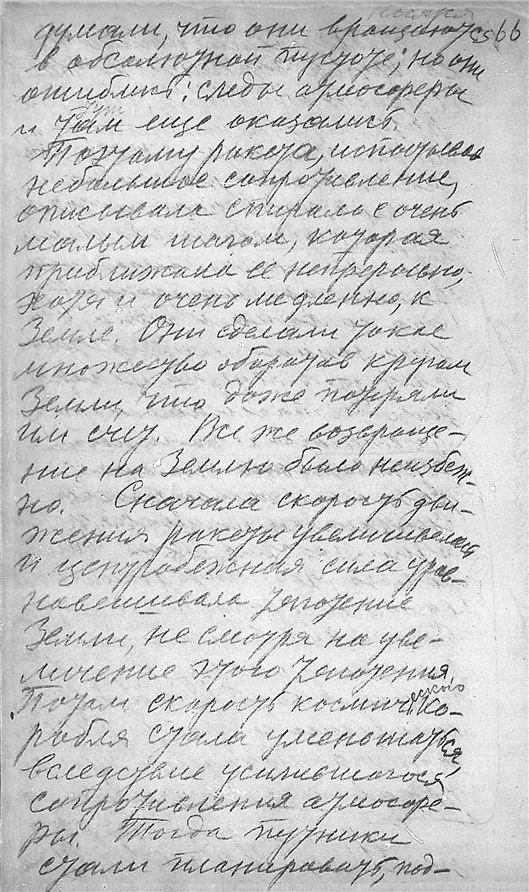 думали, что они вращаются 66
в абсолютной пустоте; но они
ошиблись: следы атмосферы
и там еще оказались.
Поэтому ракета, испытывая
небольшое сопротивление,
описывала спираль с очень
малым шагом, которая
приближала ее непрерывно,
хотя и очень медленно, к
Земле. Они сделали такое
множество оборотов кругом
Земли, что даже потеряли
им счет. Все же возвраще-
ние на Землю было неизбеж-
но. Сначала скорость дви-
жения ракеты увеличивалась
и центробежная сила урав-
новешивала тяготение
Земли, не смотря на уве-
личение этого тяготения.
Потом скорость космического ко-
рабля стала уменьшаться,
вследствие усилившегося
сопротивления атмосфе-
ры. Тогда путники
стали планировать, под-